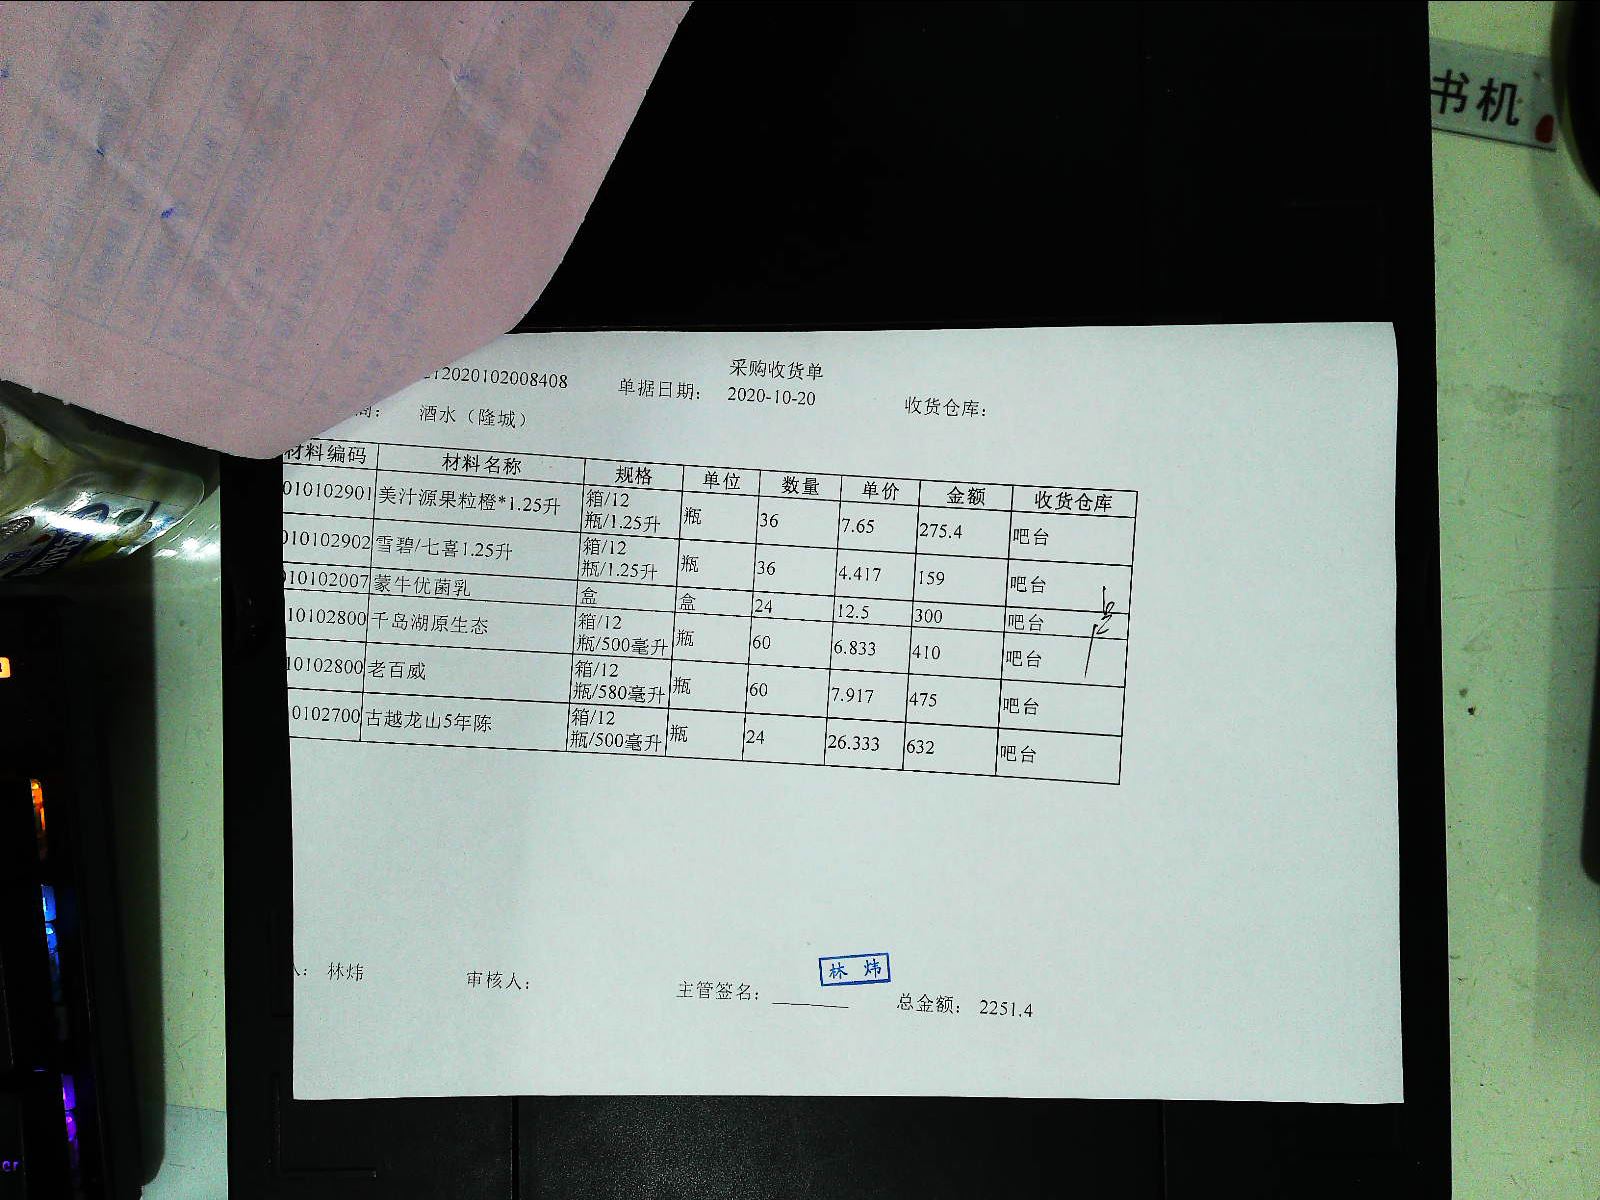 书机
采购收货单
212020102008408 单据日期： 2020-10-20 收货仓库：
商： 酒水（隆城）
材料编码 材料名称 规格 单位 数量 单价 金额 收货仓库
010102901 美汁源果粒橙*1.25升 箱/12 瓶/1.25升 瓶 36 7.65 275.4 吧台
010102902 雪碧/七喜1.25升 箱/12 瓶/1.25升 瓶 36 4.417 159 吧台
010102007 蒙牛优菌乳 盒 盒 24 12.5 300 吧台
10102800 千岛湖原生态 箱/12 瓶/500毫升 瓶 60 6.833 410 吧台
10102800 老百威 箱/12 瓶/580毫升 瓶 60 7.917 475 吧台
0102700 古越龙山5年陈 箱/12 瓶/500毫升 瓶 24 26.333 632 吧台
林炜
人： 林炜 审核人： 主管签名： 总金额： 2251.4